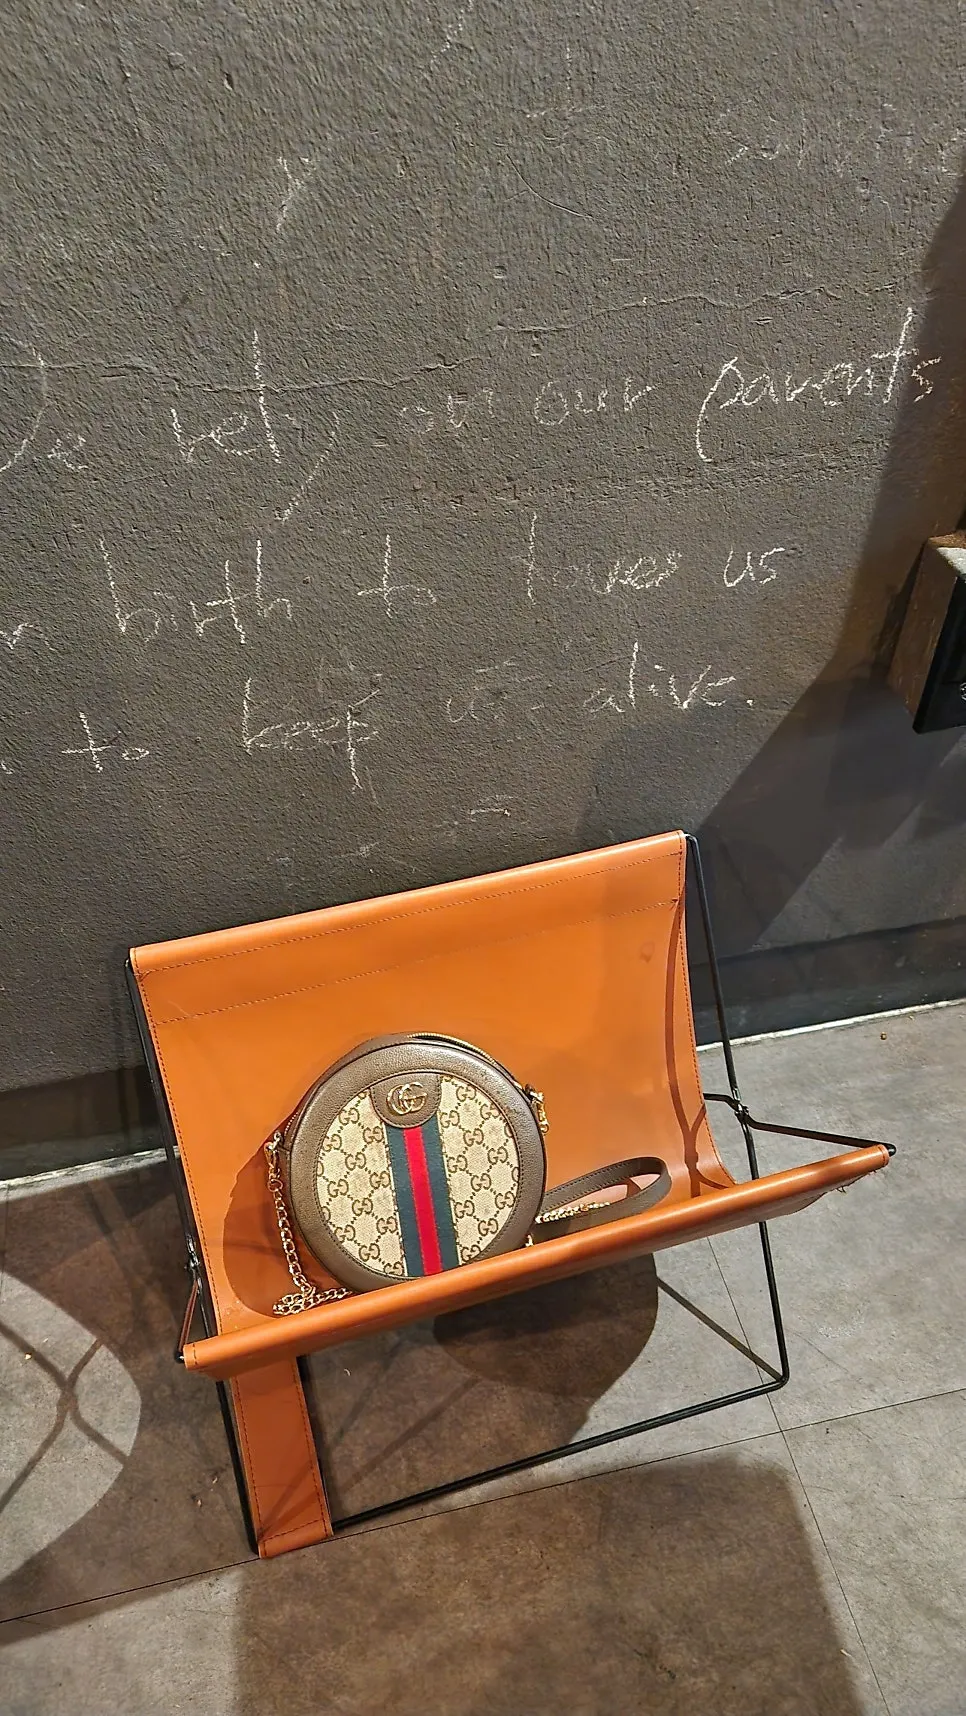 We rely on our parents
birth to loves us
to keep us alive.
GG